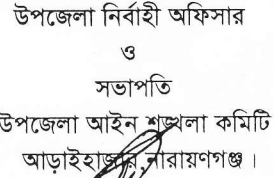 উপজেলা নির্বাহী অফিসার
ও
সভাপতি
উপজেলা আইন শৃঙ্খলা কমিটি
আড়াইহাজার, নারায়ণগঞ্জ ।